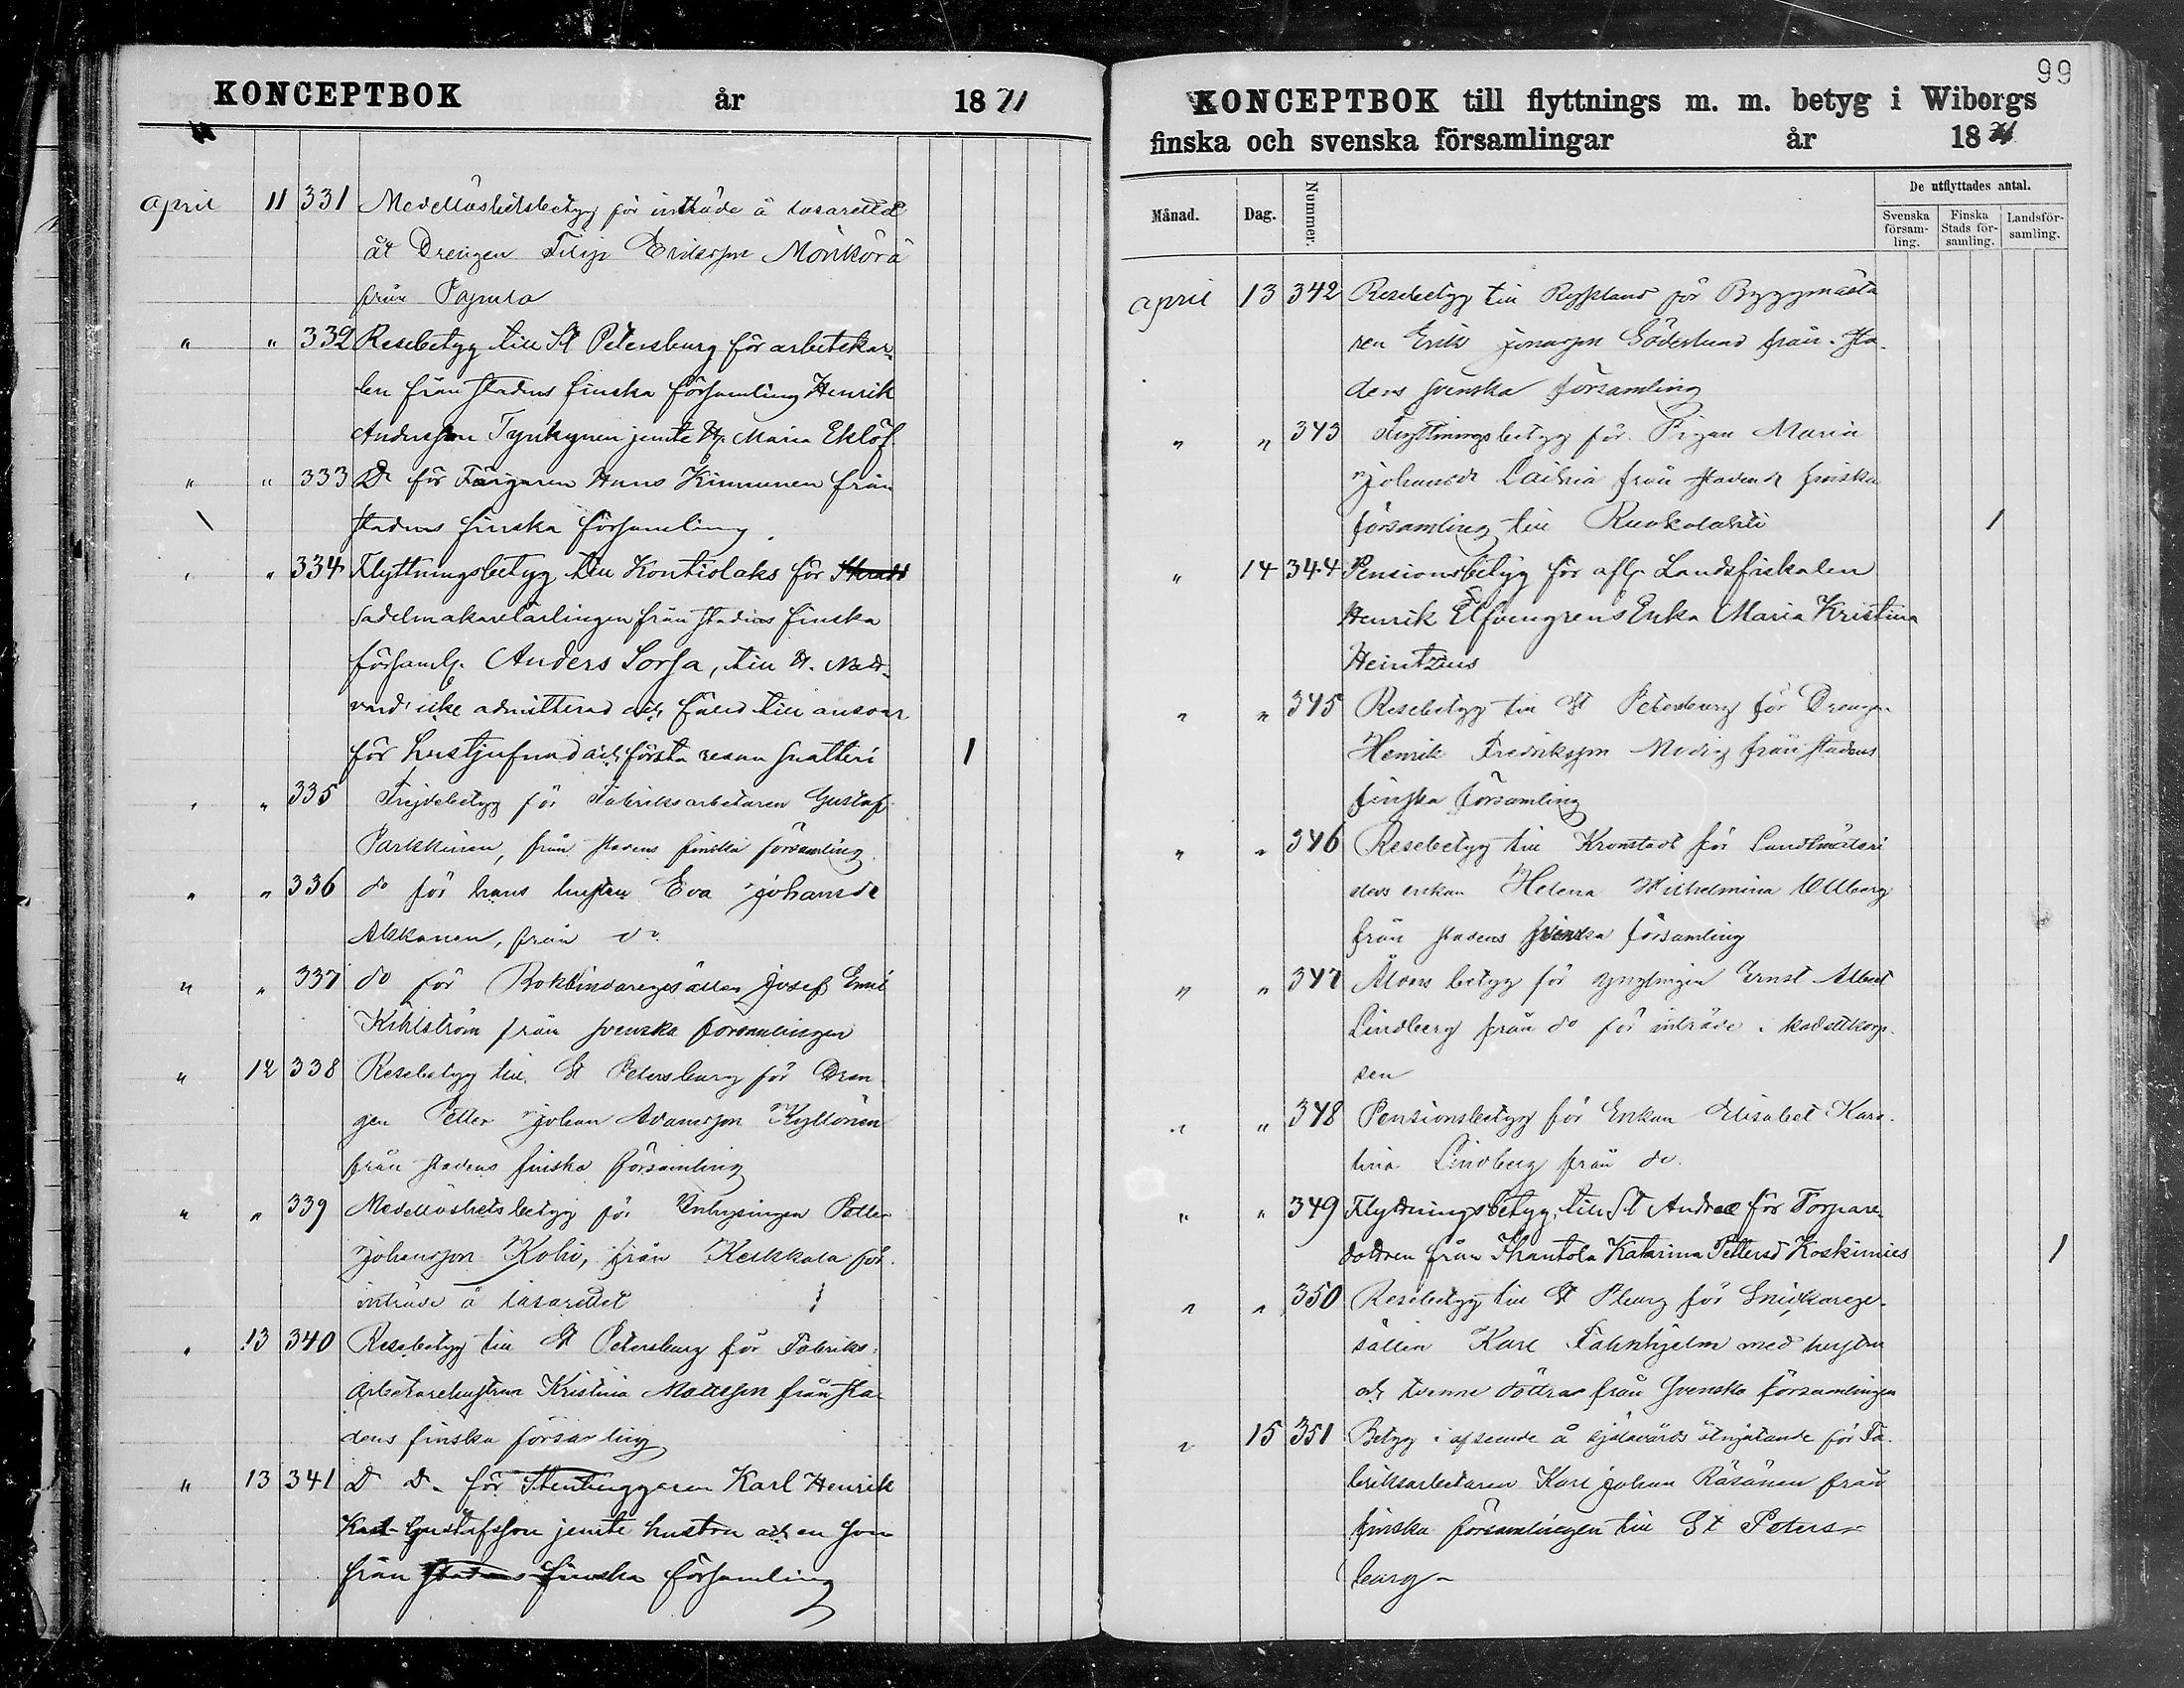 KONCEPTBOK år 1871
april 11 331 Medellöshetsbetyg för inträde å lasarettet
åt Drengen Filip Eriksson Mönkörä
från Papula
" " 332 Resebetyg till St Petersburg för arbetskar-
len från stadens finska församling Henrik
Andersson Tynkynen jemte H. Maria Eklöf
" " 333 Do för Färgaren Hans Kinnunen från
stadens finska församling.
" " 334 Flyttningsbetyg till Kontiolaks för
Sadelmakarelärlingen från stadens finska
församlg. Anders Sorsa, till H. Natt-
vard icke admitterad och fälld till ansvar
för lustjufnad och första resan snatteri 1
" " 335 Frejdebetyg för Fabriksarbetaren Gustaf
Parkkinen, från stadens finska församling
" " 336 do för hans hustru Eva Johansdr
Akkanen, från do
" " 337 do för Bokbindaregesällen Josef Emil
Kihlström från svenska församlingen
" 12 338 Resebetyg till St Petersburg för Dren-
gen Petter Johan Adamsson Kyllönen
från stadens finska församling
" " 339 Medellöshetsbetyg för Inhysingen Petter
Johansson Kohi, från Keikkala för
inträde å lasarettet
" 13 340 Resebetyg till St Petersburg för Fabriks-
arbetarehustrun Kristina Mattsson från sta-
dens finska församling
" 13 341 D D. för Stenhuggaren Karl Henrik
Karl Gustafsson jemte hustru och en son
från stadens finska församling
99
KONCEPTBOK till flyttnings m. m. betyg i Wiborgs
finska och svenska församlingar år 1871
Månad. Dag. Nummer. De utflyttades antal.
Svenska församling. Finska Stads församling. Landsförsamling.
april 13 342 Resebetyg till Ryssland för Byggmästa
ren Erik Jonasson Söderlund från sta-
dens svenska församling
" " 343 Flyttningsbetyg för Pigan Maria
Johansdr Laihia från stadens finska
församling till Ruokolahti 1
" 14 344 Pensionsbetyg för afl. Landsfiskalen
Henrik Elfvengrens Enka Maria Kristina
Heintzius
" " 345 Resebetyg till St Petersburg för Drengen
Henrik Fredriksson Modig från stadens
finska församling
" " 346 Resebetyg till Kronstadt för Landtmäteri
enkan Helena Wilhelmina Wllberg
från stadens svenska församling
" " 347 Ålders betyg för ynglingen Ernst Albert
Lindberg från do för inträde i kadettkorp-
sen
" " 348 Pensionsbetyg för Enkan Elisabet Karo-
lina Lindberg från do.
" " 349 Flyttningsbetyg till St Andreæ för Torpare-
dottren från Ihantola Katarina Pettersd Koskimies 1
" " 350 Resebetyg till St Pburg för Snickarege-
sällen Karl Fahnhjelm med hustru
och tvenne döttrar från svenska församlingen
" 15 351 Betyg i afseende å själavårds åtnjutande för Fa-
briksarbetaren Karl Johan Räsänen från
finska församlingen till St Peters-
burg-